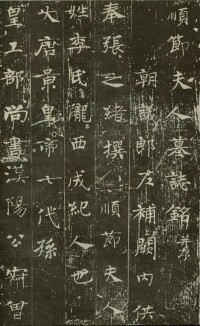 順節夫人墓誌銘并序
朝議郎右補闕內供
奉張之緒撰順節夫人
姓李氏隴西成紀人也
大唐景皇帝七代孫
皇工部尚書漢陽公齊曾